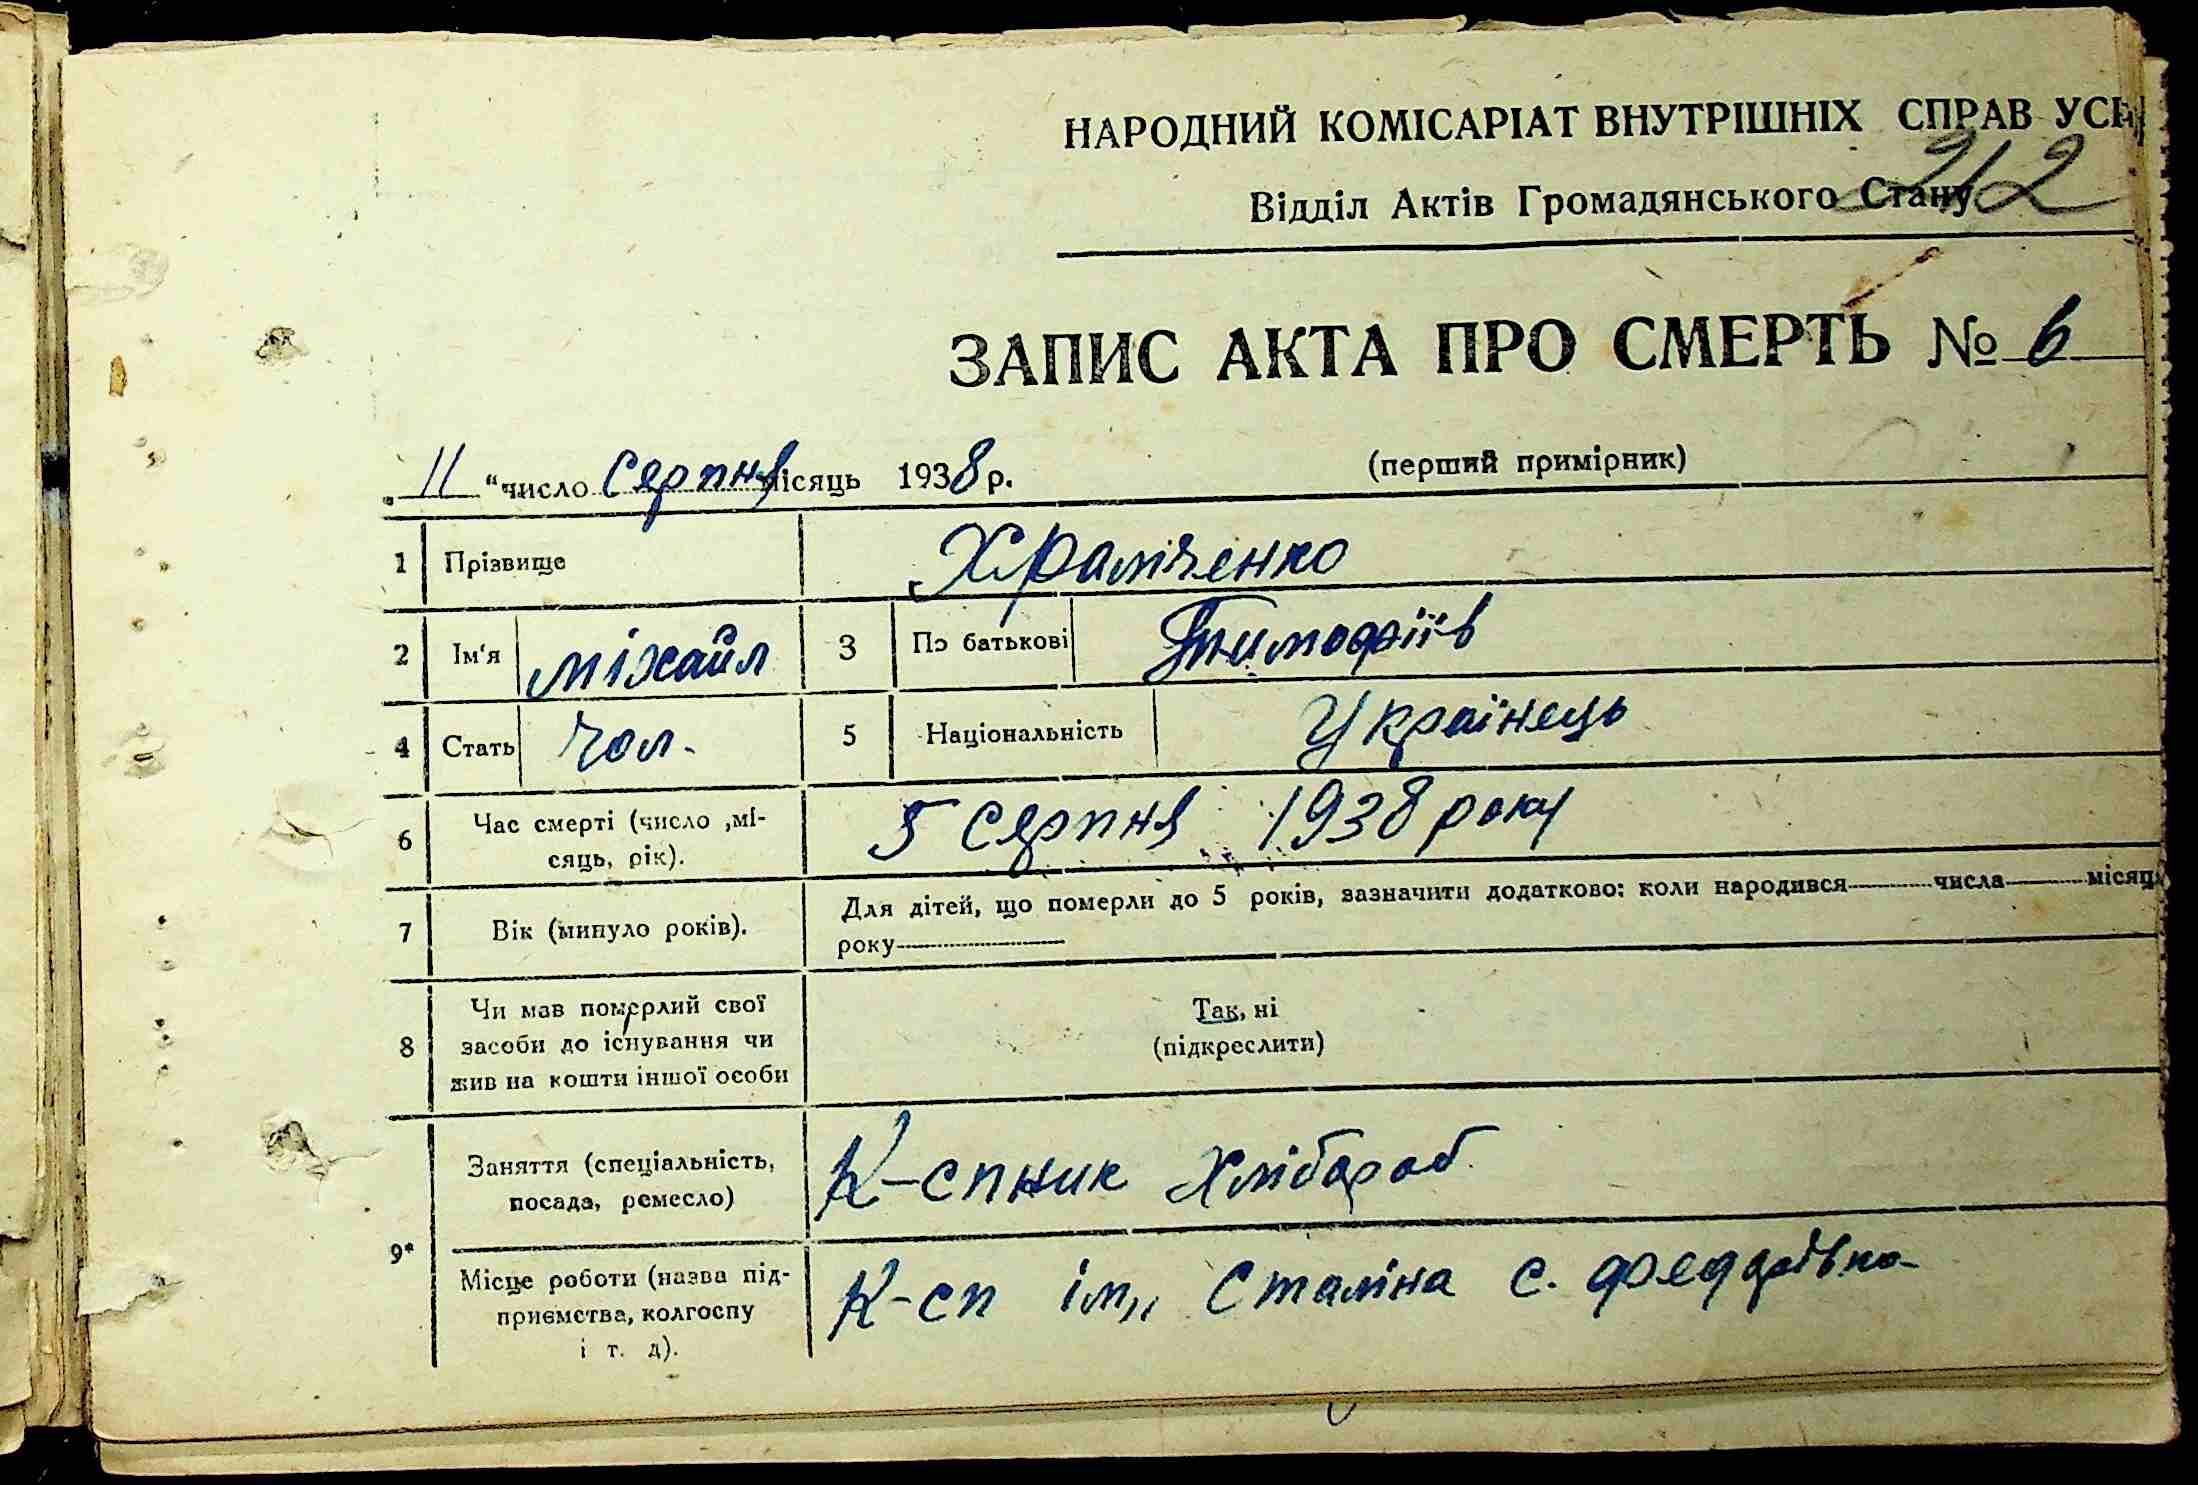 НАРОДНИЙ КОМІСАРІАТ ВНУТРІШНІХ СПРАВ УСР
212
Відділ Актів Громадянського Стану
ЗАПИС АКТА ПРО СМЕРТЬ № 6
„ 11 “ число Серпня місяць 1938 р.
(перший примірник)
1 Прізвище Храмченко
2 Ім‘я Міхайл 3 По батькові Тимофіїв
4 Стать Чол. 5 Національність Українець
6 Час смерті (число ,мі-
сяць, рік).
5 Серпня 1938 року
7 Вік (минуло років).
Для дітей, що померли до 5 років, зазначити додатково: коли народився числа місяц
року
8 Чи мав померлий свої
засоби до існування чи
жив на кошти іншої особи
Так, ні
(підкреслити)
9*
Заняття (спеціальність,
посада, ремесло)
К-спник Хлібароб
Місце роботи (назва під-
приємства, колгоспу
і т. д).
К-сп ім,, Сталіна с.